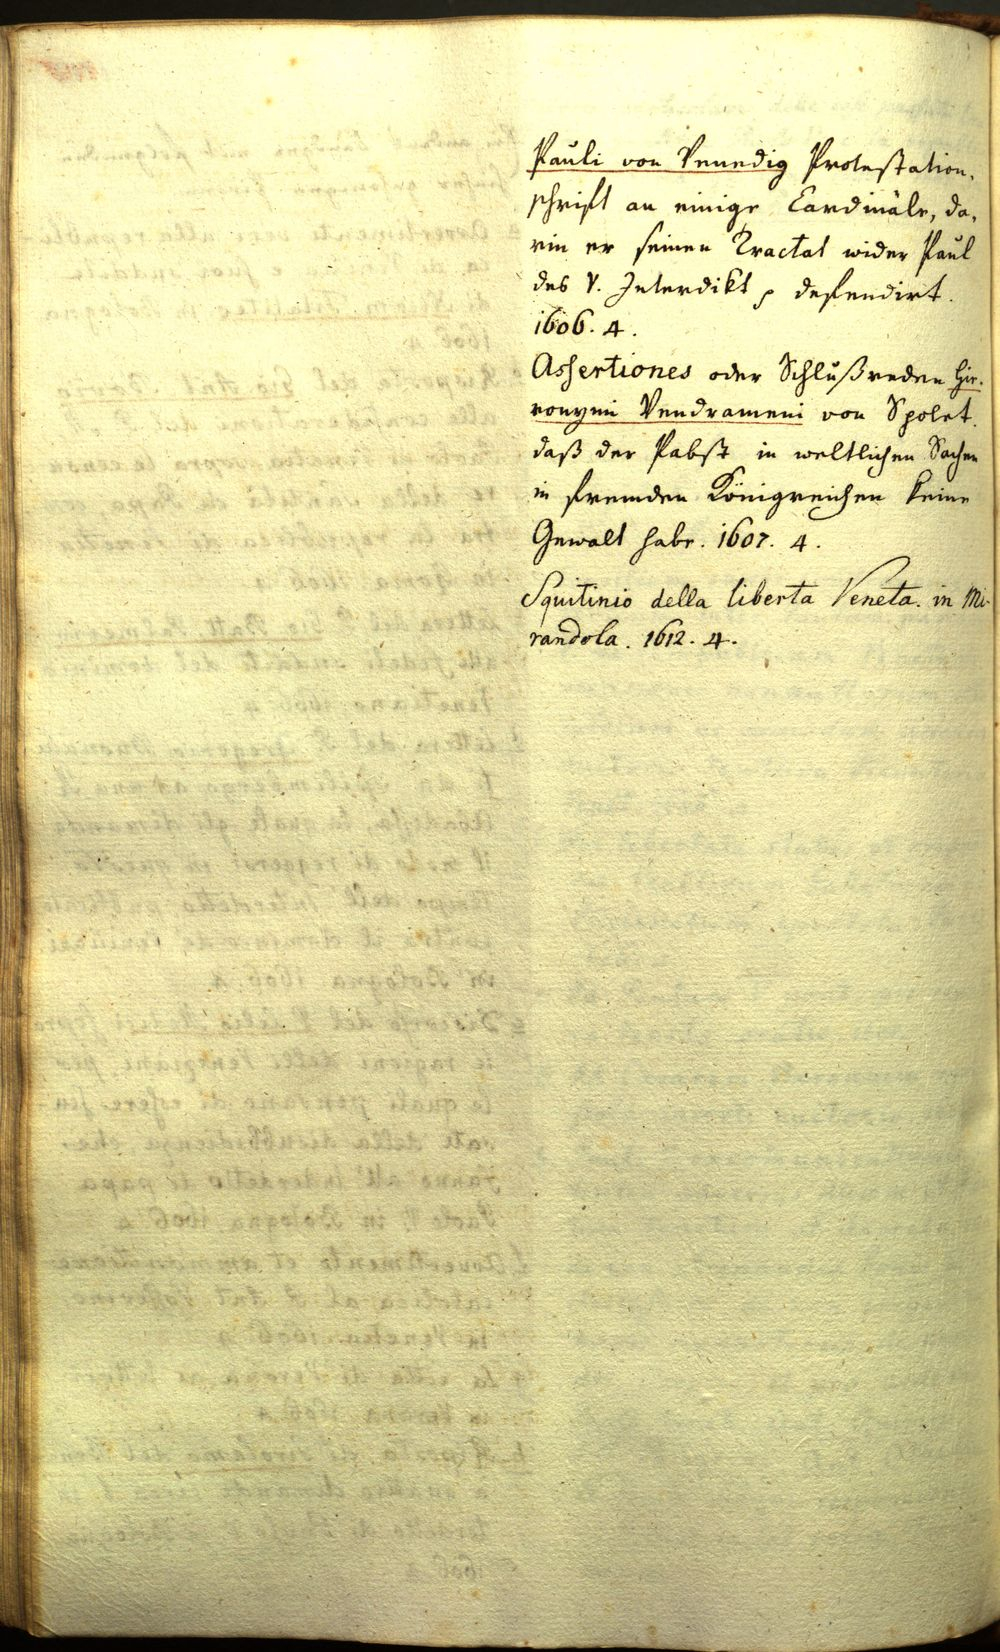 Pauli von Venedig Protestation,
schrift an einige Cardinäle, da,
rin er seinen Tractat wider Paul
des V. Interdikt defendirt.
1606. 4.
Assertiones oder Schlußreden Hie.
ronymi Vendrameni von Spolet.
daß der Pabst in weltlichen Sachen
in fremden Königreichen keine
Gewalt habe. 1607. 4.
Squitinio della liberta Veneta. in Mi-
randola. 1612. 4.